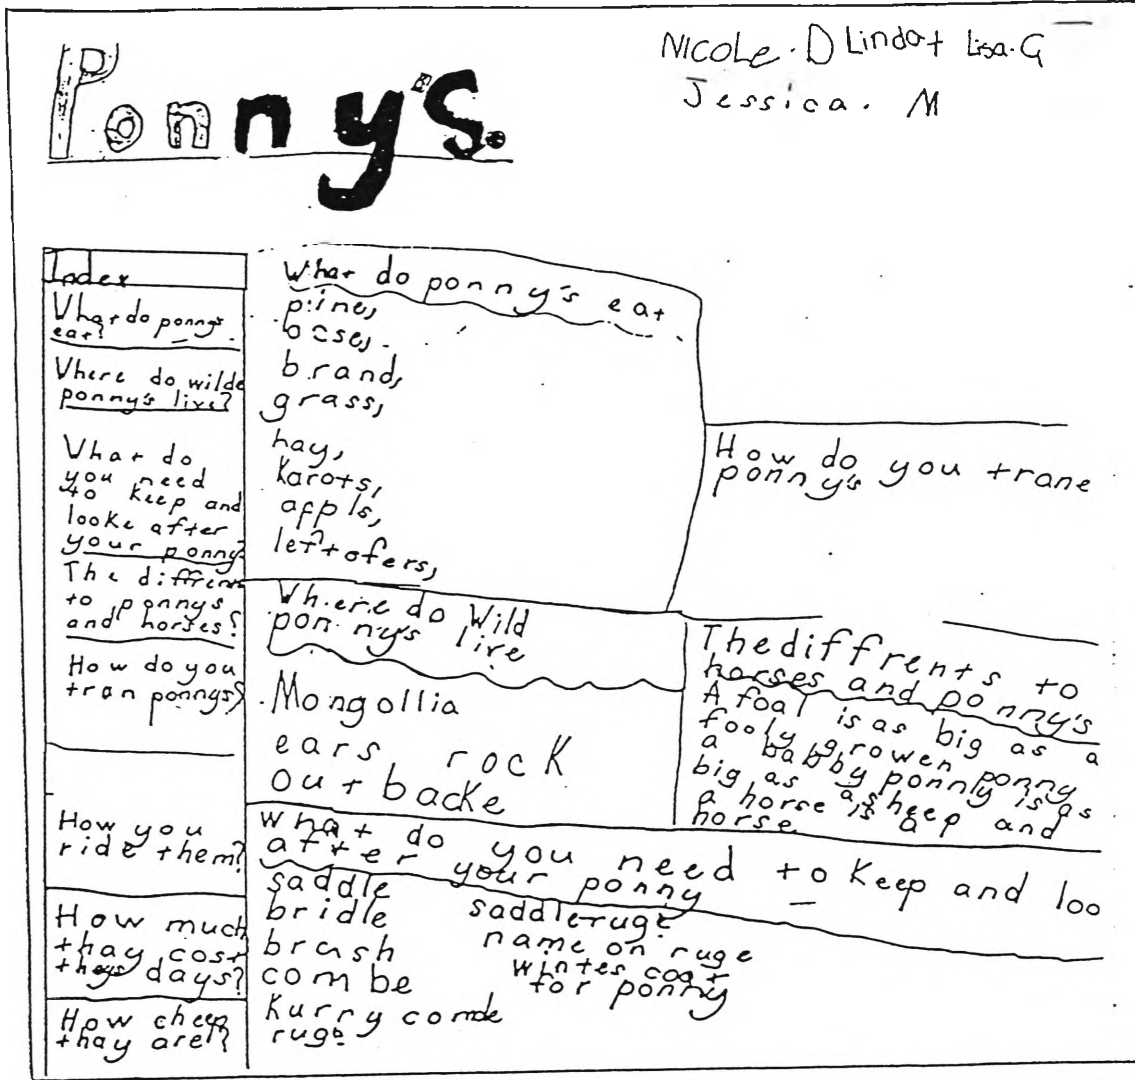 Ponny's.
NICOLE. D Linda t Lisa. G
Jessica. M
Index
What do ponnys
eat?
Where do wilde
ponny's live?
What do
you need
to keep and
looke after
your ponny?
The diffrens
to ponnys
and horses?
How do you
tran ponnys?
How you
ride them?
How much
thay cost
theys days?
How cheep
thay are?
What do ponny's eat
pine,
ocse,
brand,
grass,
hay,
Karots,
appls,
leftofers,
How do you trane
ponny's
Where do Wild
ponny's live
Mongollia
ears rock
out backe
The diffrents to
horses and ponny's
A foal is as big as a
fooly growen ponny
a babby ponnly is as
big as a sheep and
a horse is a
horse
what do you need to keep and loo
after your ponny
saddle
bridle
brash
combe
Kurry combe
ruge
saddleruge
name on ruge
wintes coat
for ponny